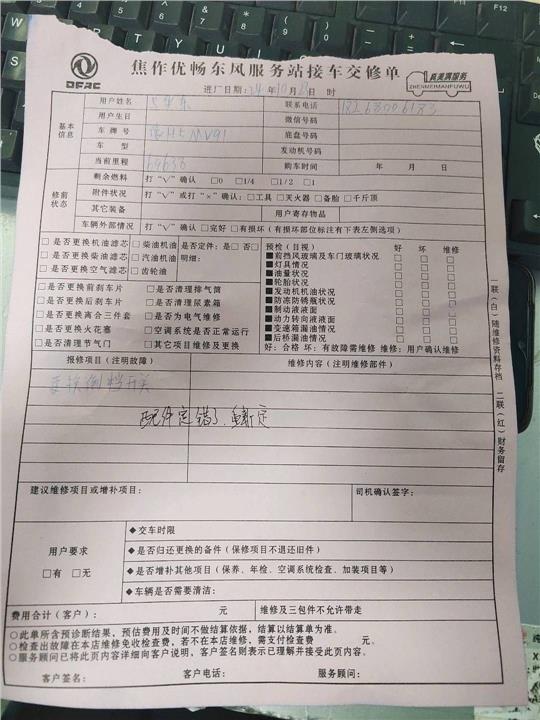 DFAC
焦作优畅东风服务站接车交修单
真美满服务
ZHENMEIMANFUWU
进厂日期：24 年 10 月 23 日 时
基本信息
用户姓名
联系电话
用户生日
微信号码
车牌号
底盘号码
车 型
发动机号码
当前里程 69636
购车时间 年 月 日
修前状态
剩余燃料 打“√”确认 □0 □1/4 □1/2 □1
附件状况 打“√”或打“×”确认：□工具 □灭火器 □备胎 □千斤顶
其它装备
用户寄存物品
车辆外部情况 打“√”确认 □完好 □有损坏（有损坏部位标注有下表左侧选项）
□是否更换机油滤芯 □柴油机油 □是否定件：是□ 否□
□是否更换柴油滤芯 □汽油机油 明细：
□是否更换空气滤芯 □齿轮油
□是否更换前刹车片 □是否清理排气筒
□是否更换后刹车片 □是否清理尿素箱
□是否更换离合三件套 □是否为电气维修
□是否更换火花塞 □空调系统是否正常运行
□是否清理节气门 □其它项目维修及更换
预检（目视） 好 坏 维修
■前挡风玻璃及车门玻璃状况 □ □ □
■灯具情况 □ □ □
■油量状况 □ □ □
■轮胎状况 □ □ □
■发动机机油状况 □ □ □
■防冻防锈瓶状况 □ □ □
■制动液液面 □ □ □
■动力转向液液面 □ □ □
■变速箱漏油情况 □ □ □
■后桥漏油情况 □ □ □
好：合格 坏：有故障需维修 维修：用户确认维修
报修项目（注明故障）
维修内容（注明维修部件）
更换倒档开关
配件定错了，重新定
建议维修项目或增补项目：
司机确认签字：
用户要求
□有 □无
◆交车时限
◆是否归还更换的备件（保修项目不退还旧件）
◆是否增补其他项目（保养、年检、空调系统检查、加装项目等）
◆车辆是否需要清洁：
费用合计（客户）： 元
维修及三包件不允许带走
○此单所含预诊断结果，预估费用及时间不做结算依据，结算以结算单为准。
○检查出故障在本店维修免收检查费，若不在本店维修，需支付检查费 元。
○服务顾问已将此页内容详细向客户说明，客户签名则表示已理解并接受此页内容。
客户签名： 客户电话： 服务顾问：
一联（白）随维修资料存档 二联（红）财务留存